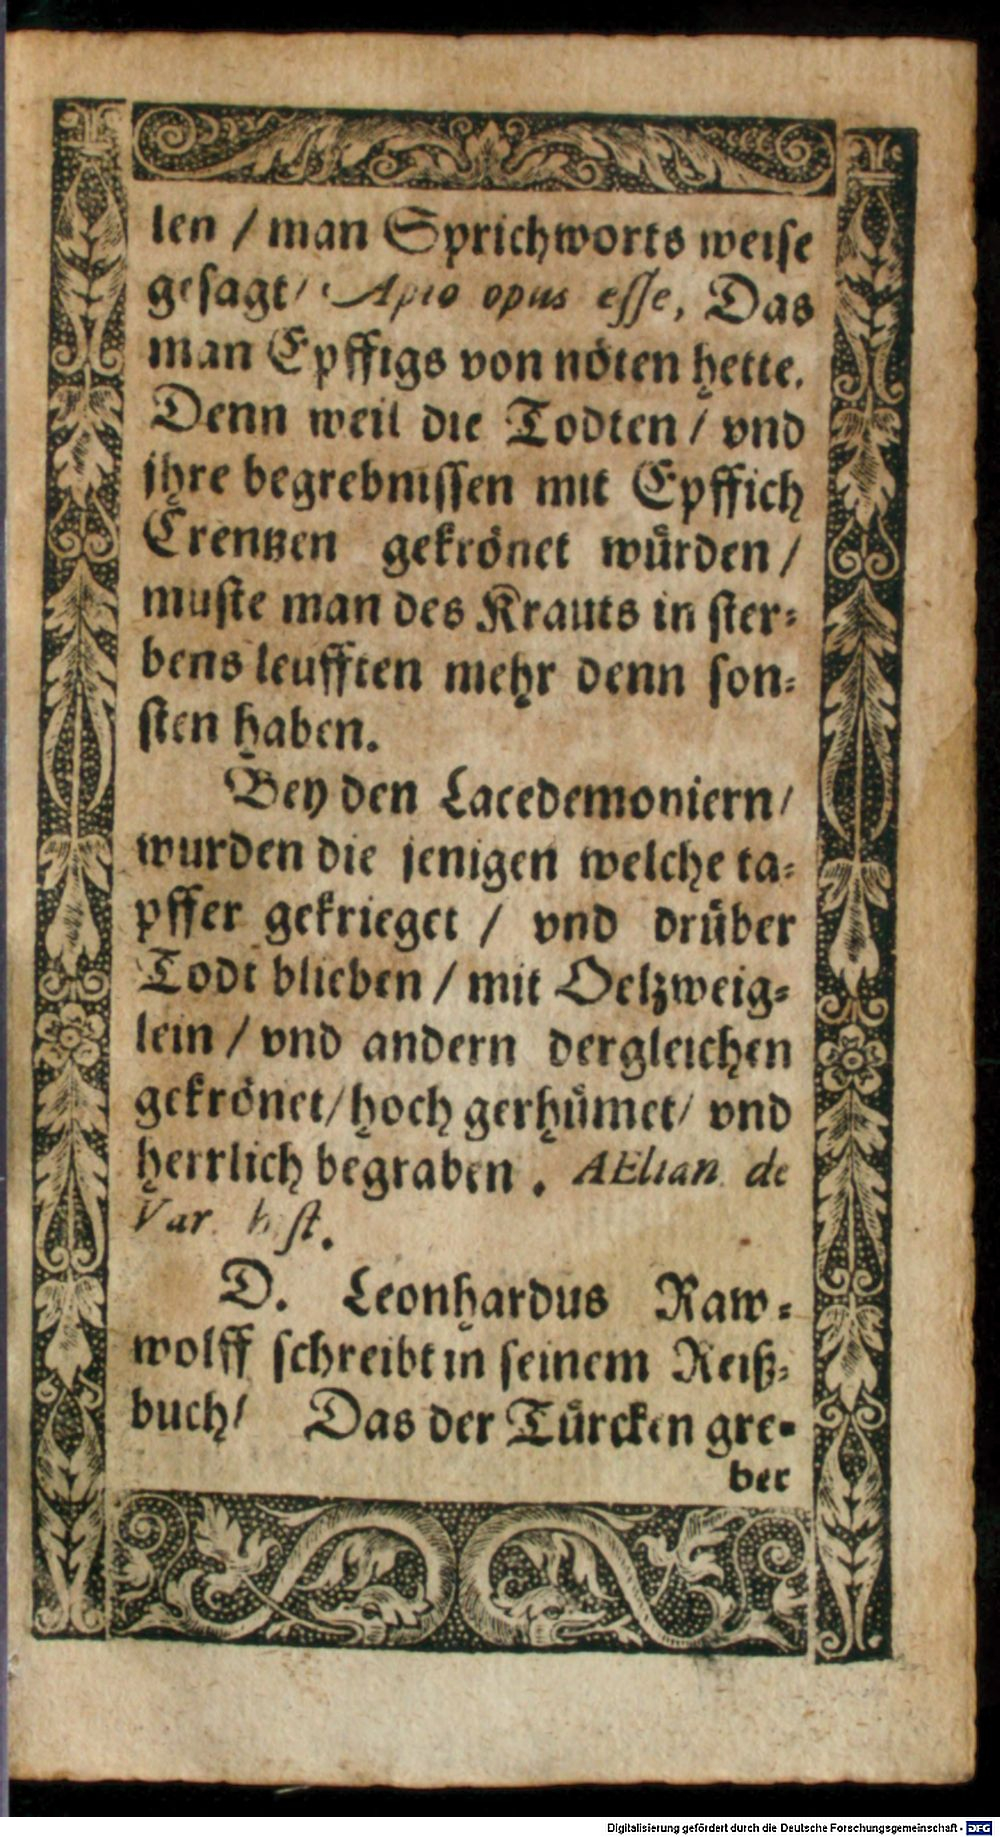 len / man Sprichworts weise
gesagt / Apio opus esse, Das
man Epffigs von nöten hette.
Denn weil die Todten / vnd
jhre begrebnissen mit Epffich
Crentzen gekrönet würden /
muste man des Krauts in ster-
bens leufften mehr denn son-
sten haben.
Bey den Lacedemoniern /
wurden die jenigen welche ta-
pffer gekrieget / vnd drüber
Todt blieben / mit Oelzweig-
lein / vnd andern dergleichen
gekrönet / hoch gerhümet / vnd
herrlich begraben . AElian de
Var. hist.
D. Leonhardus Raw-
wolff schreibt in seinem Reiß-
buch / Das der Türcken gre-
ber
Digitalisierung gefördert durch die Deutsche Forschungsgemeinschaft - DFG